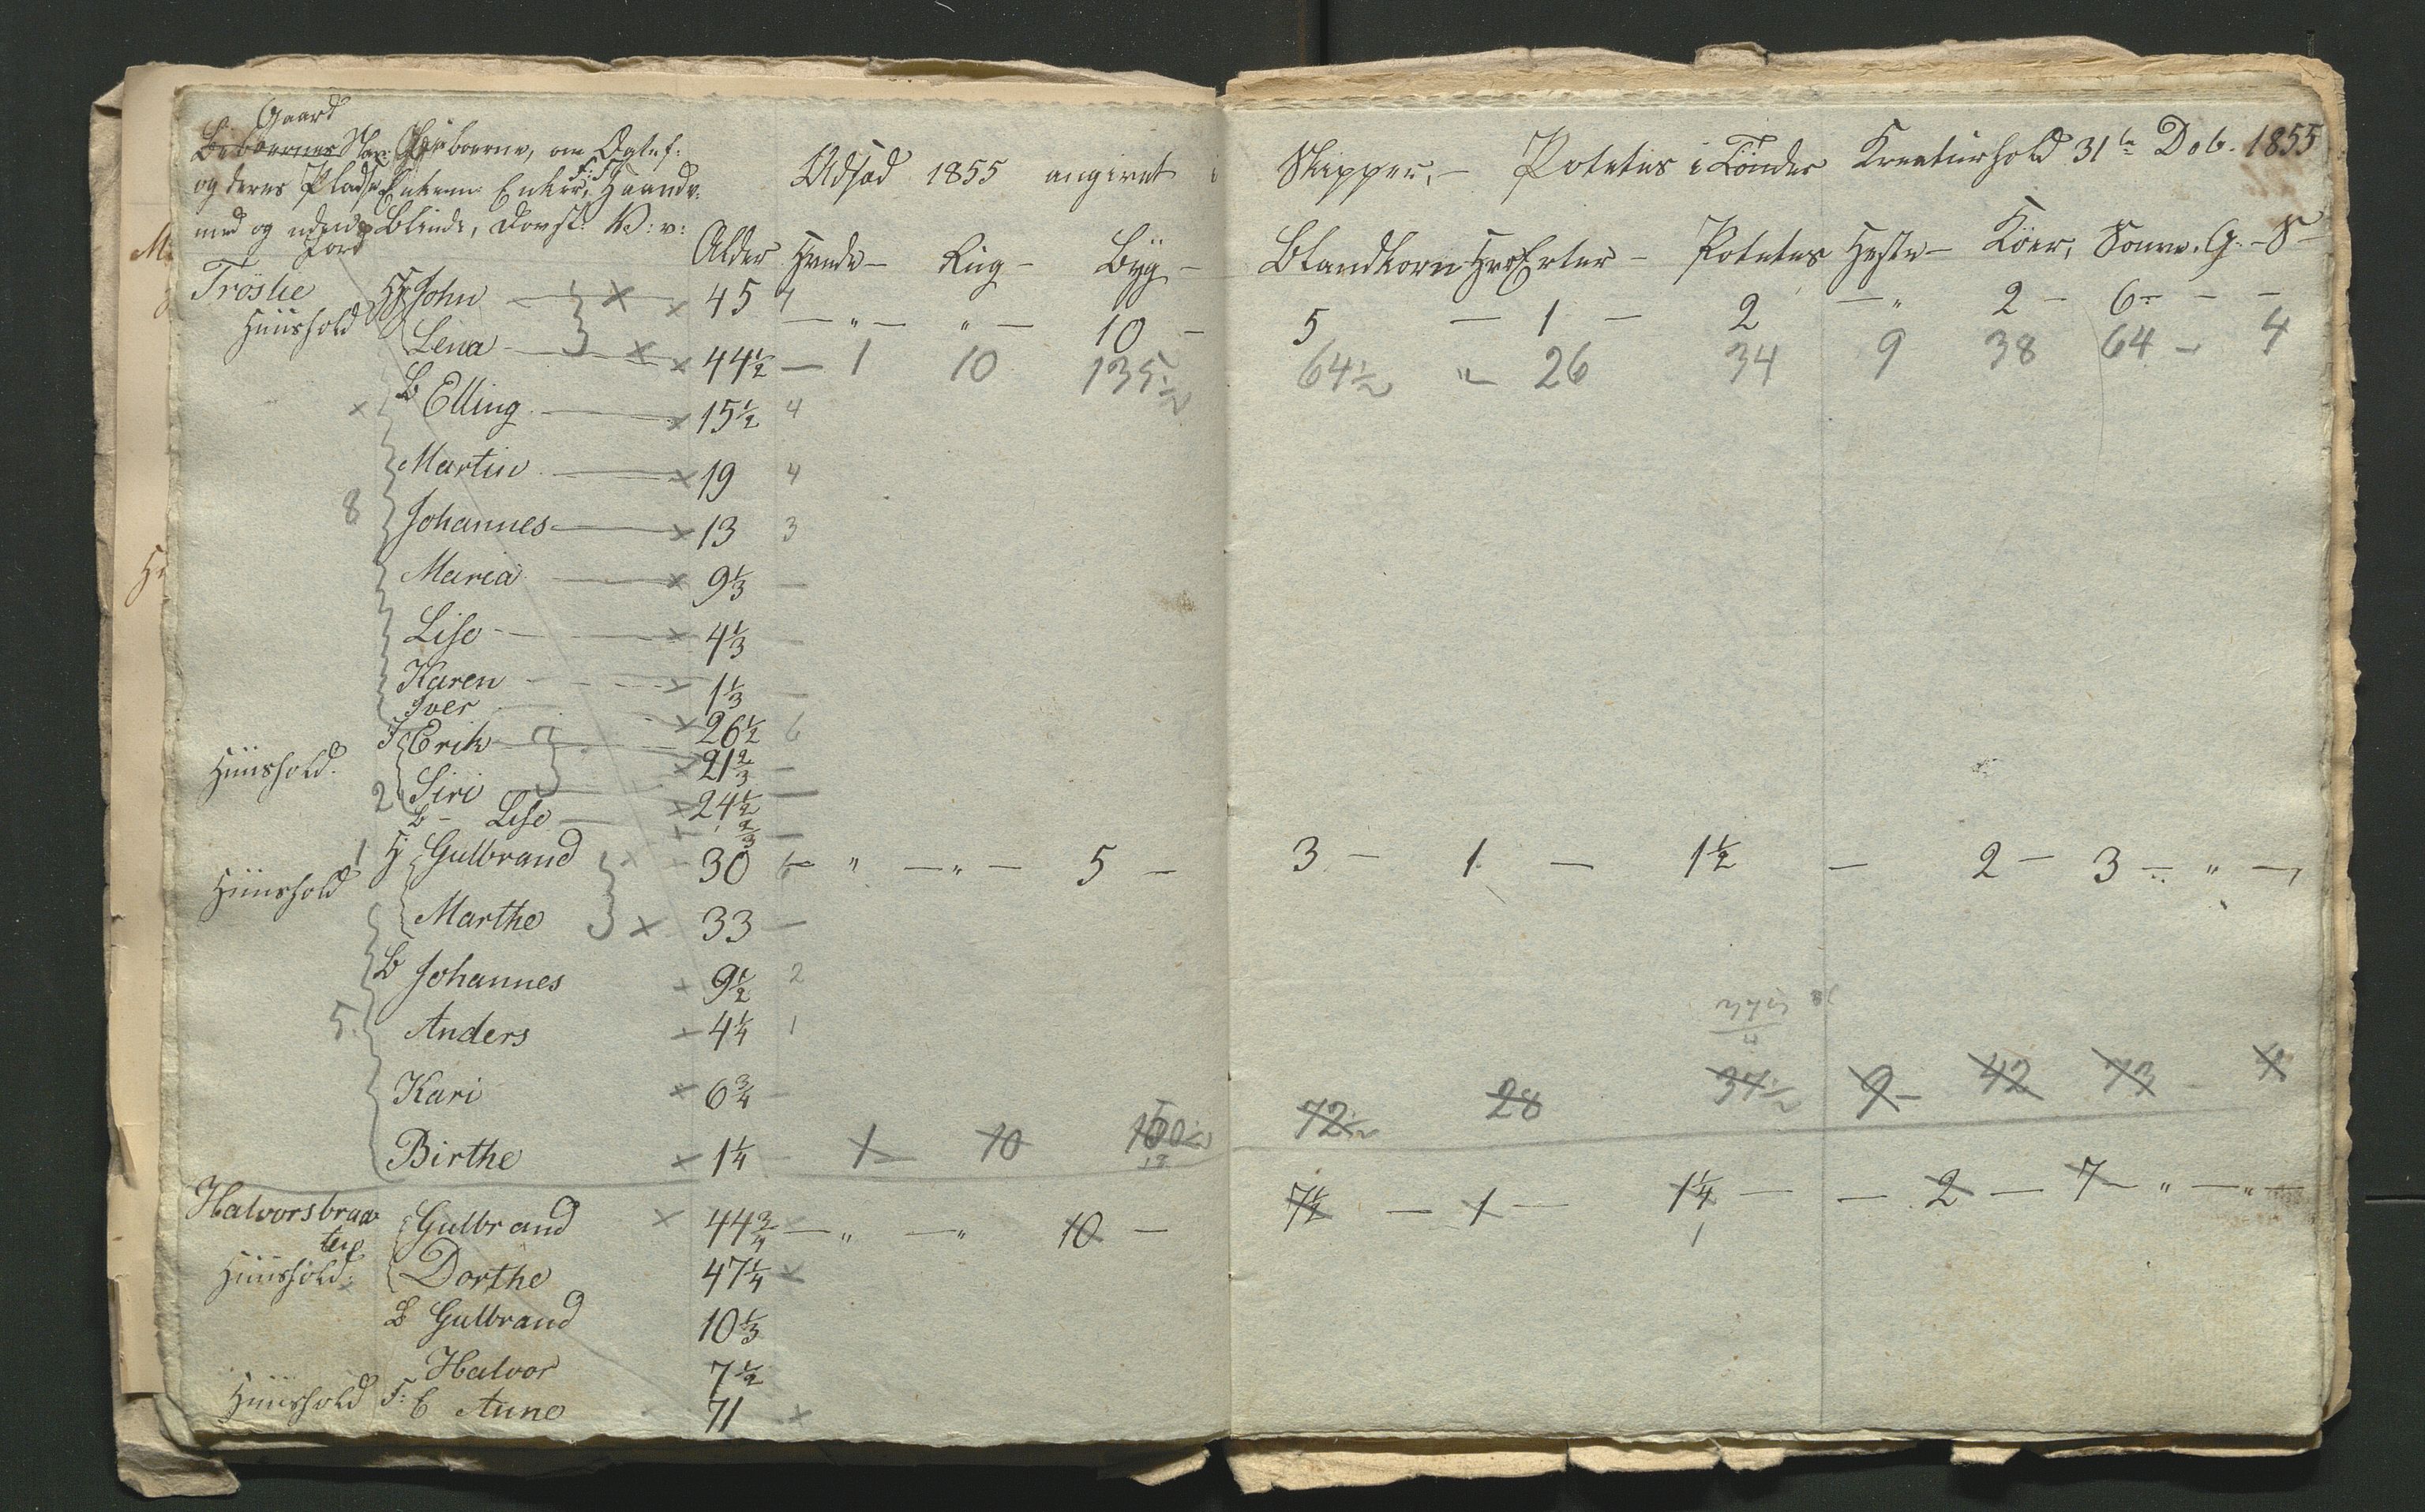 Gaard
og deres Pladse Enker, Haandv:
med og uden Blinde, Døvst: V: v:
Jord
Udsæd 1855 angivet i Skipper, - Poteter i Tönder Kreaturhold 31te Deb. 1855
Alder Hvede - Rug - Byg - Blandkorn Erter - Poteter Heste - Köer, G. - S -
Tröske John x x 45 4 — " — " — 10 — 5 — 1 — 2 — " 2 — 6 — —
Huushold Lena x x 44½ — 1 10 135½ 64½ " 26 34 9 38 64 — 4
x B Elling x 15½ 4
Martin x 19 4
8 Johannes x 13 3
Maria x 9⅓ —
Lise x 4⅓ —
Karen x 1⅓ —
Iver x 26½ 6
Huushold. Erik x 21⅔ —
2 Siri x 24½ —
B - Lise ⅔ —
1 H Gulbrand 30 6 " — " — 5 — 3 — 1 — 1½ — 2 — 3 — " —
Huushold Marthe x 33 —
B Johannes 9½ 2
5. Anders 4¼ 1
Kari x 6¾ —
28 37½ 9 — 42 73 4
Birthe x 1¼ — 1 10 72½
Halvorsbraa
ten Gulbrand x 44¾ — " — " 10 — 7½ — 1 — 1¼ — — 2 — 7 — " — " —
1
Huushold: Dorthe 47¼ x
B Gulbrand 10⅓
Halvor 7½
Huushold F: E Anne 71 x